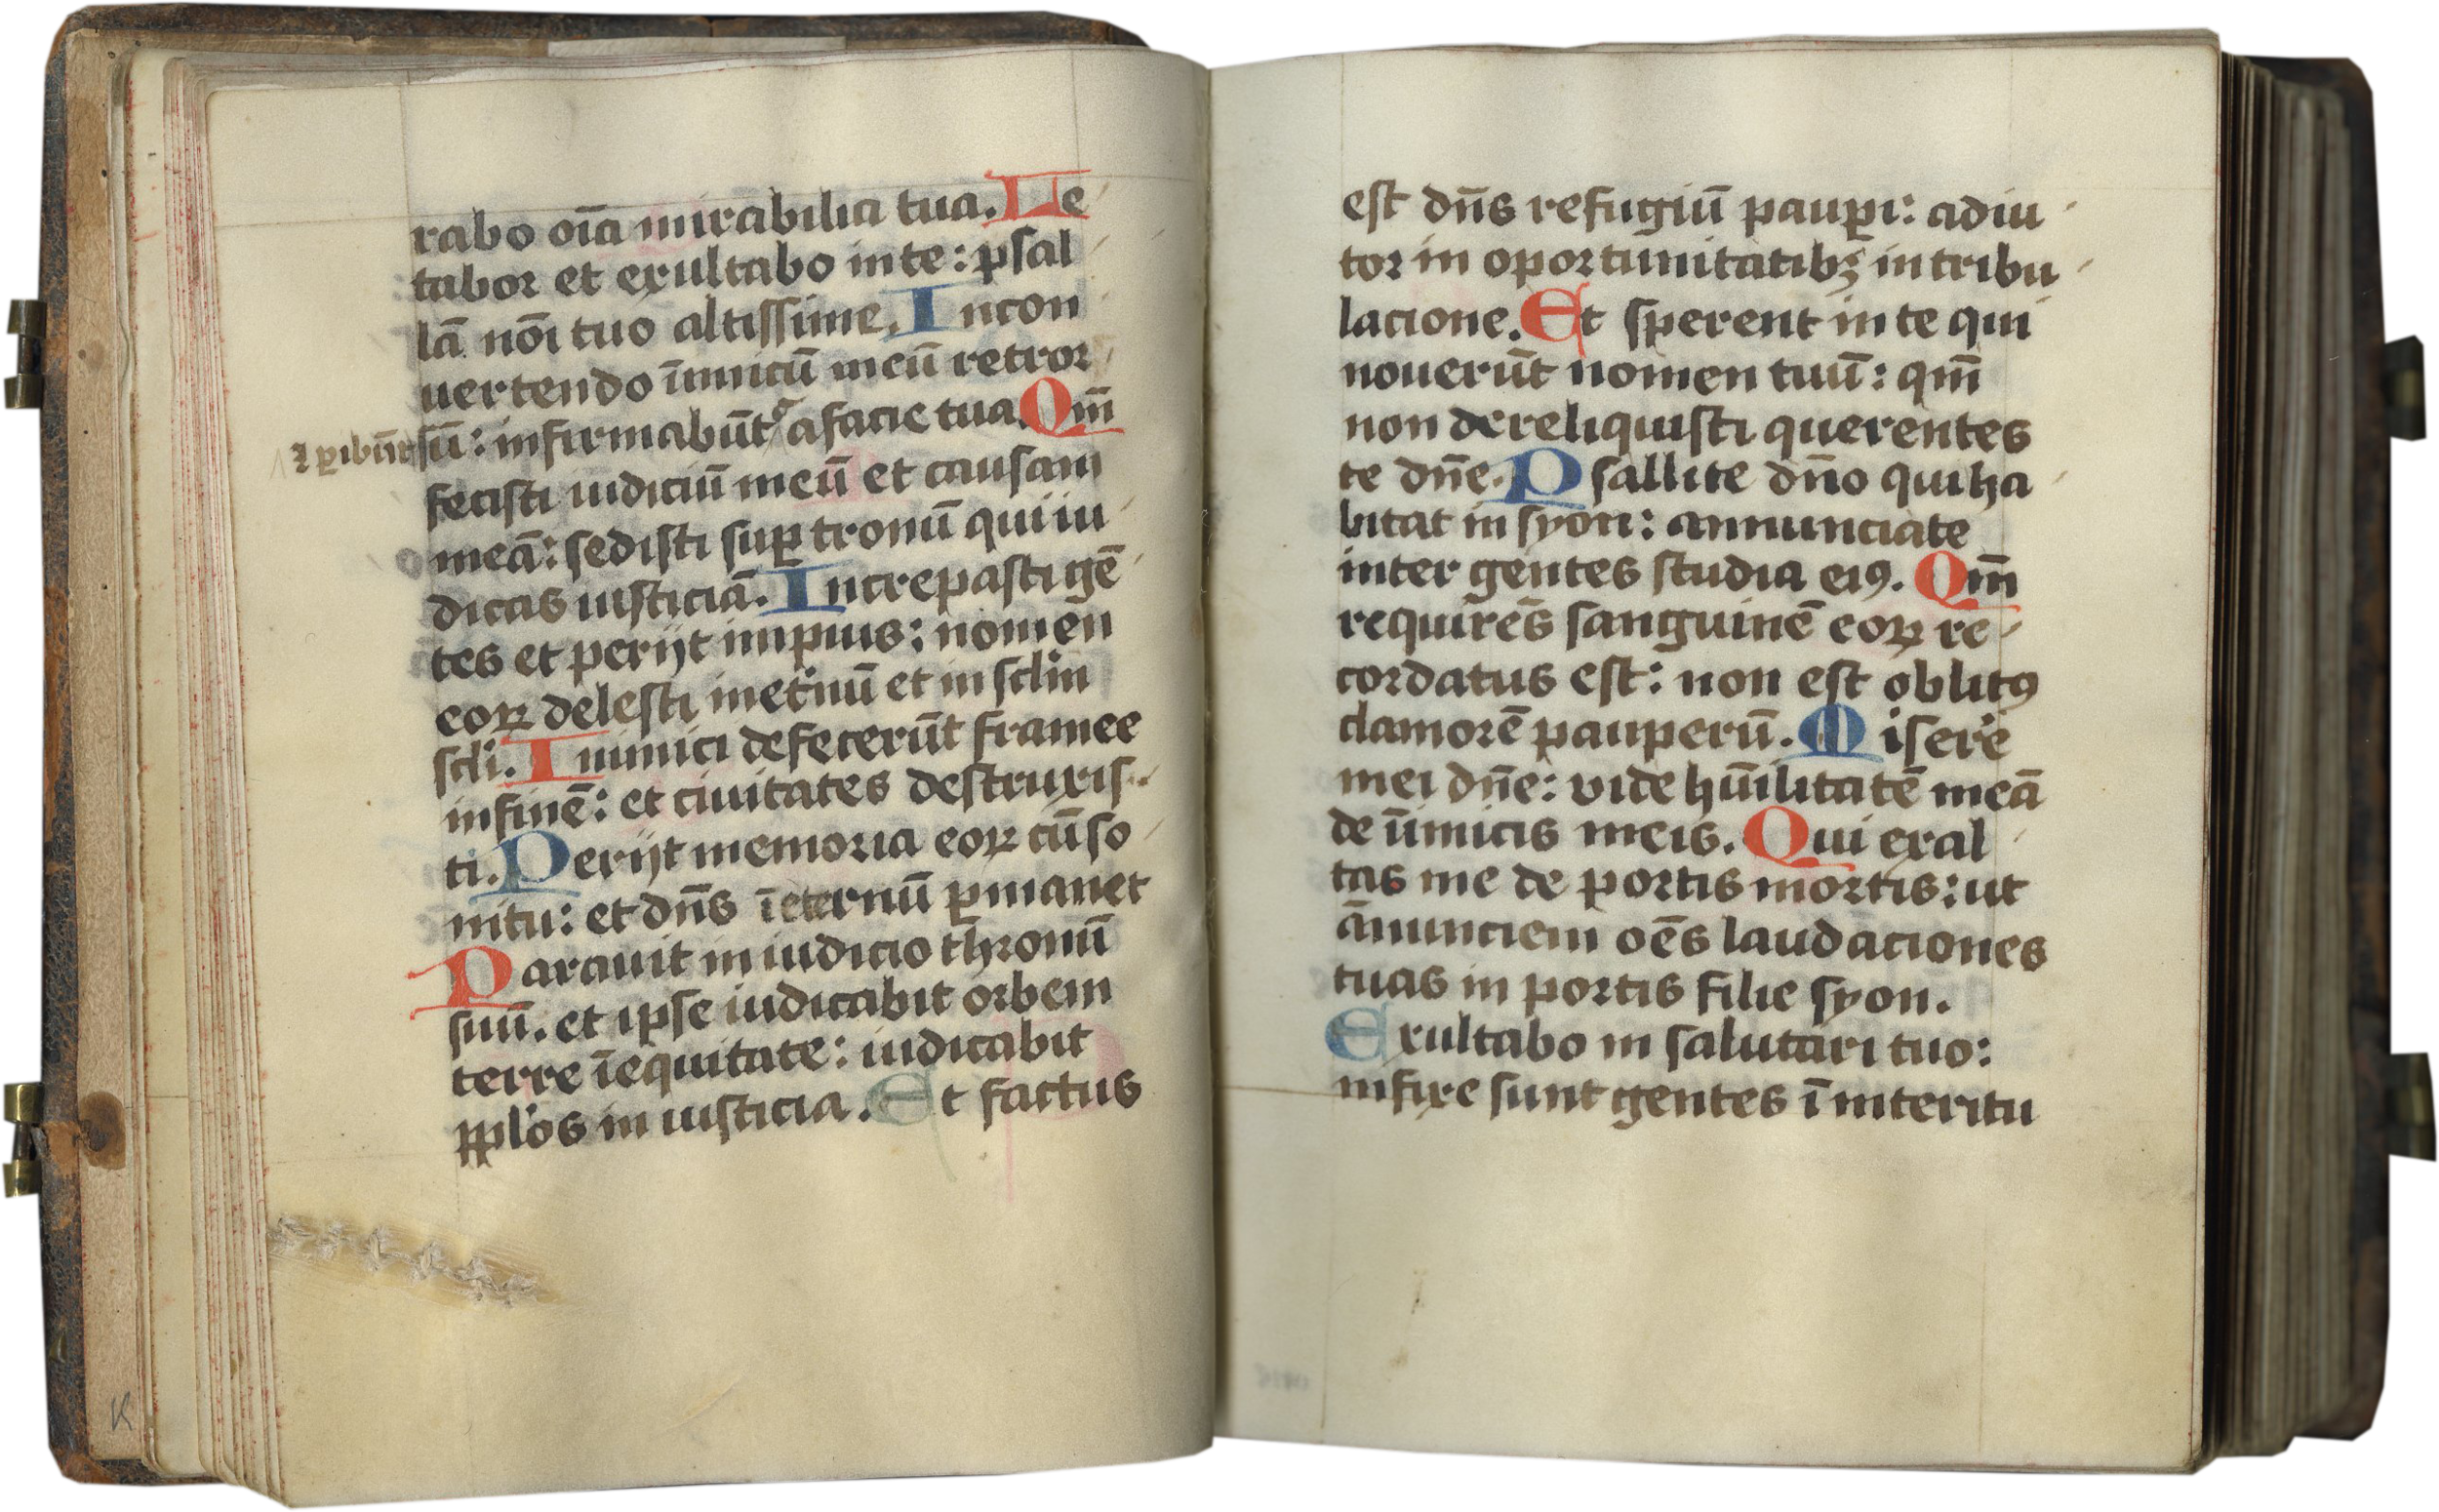 rabo oīa mirabilia tua. Le
tabor et exultabo in te: psal
lā nōi tuo altissime. In con
uertendo īimicū meū retror
⁊ ꝑibūt sū: infirmabūt̄ a facie tua. Qm̄
fecisti iudiciū meū et causam
meā: sedisti suꝑ tronū qui iu
dicas iusticiā. Increpasti gē
tes et perijt impius: nomen
eoꝝ delesti inet'nū et in sclm
scli. Inimici defecerūt framee
in finē: et ciuitates destruxis
ti. Perijt memoria eoꝝ cū so
nitu: et dn̄s īeternū ꝑmanet
Parauit in iudicio thronū
suū. et ipse iudicabit orbem
terre īequitate: iudicabit
pplo's in iusticia. Et factus
est dn̄s refugiū pauꝑi: adiu
tor in oportunitatibꝫ in tribu
lacione. Et sperent in te qui
nouerūt nomen tuū: qm̄
non dereliquisti querentes
te dn̄e. Psallite dn̄o qui ha
bitat in syon: annunciate
inter gentes studia eiꝯ. Qm̄
requirēs sanguinē eoꝝ re
cordatus est: non est oblitꝯ
clamorē pauperū. Misere
mei dn̄e: vide hūilitatē meā
de īimicis meis. Qui exal
tas me de portis mortis: ut
ānunciem oēs laudaciones
tuas in portis filie syon.
Exultabo in salutari tuo:
infixe sunt gentes ī interitu